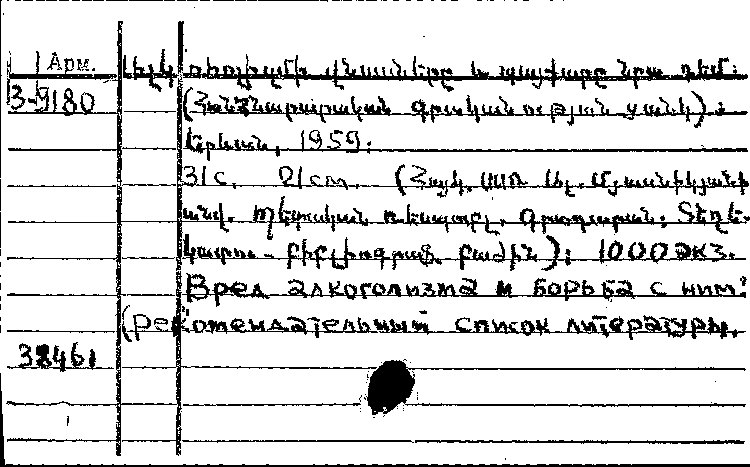 Арм.
վնասները և պայքարը նրա դեմ:
3-9180
(Հանձնարարական գրականության ցանկ):
Երևան, 1959:
31с. 21cm. (Հայկ. ՍՍՌ Ալ. Մյասնիկյանի
անվ. Պետական հանրապետ. գրադարան: Տեղե-
կատու - բիբլիոգրաֆ. բաժին): 1000 экз.
Вред алкоголизма и борьба с ним:
(рекомендательный список литературы.
38461